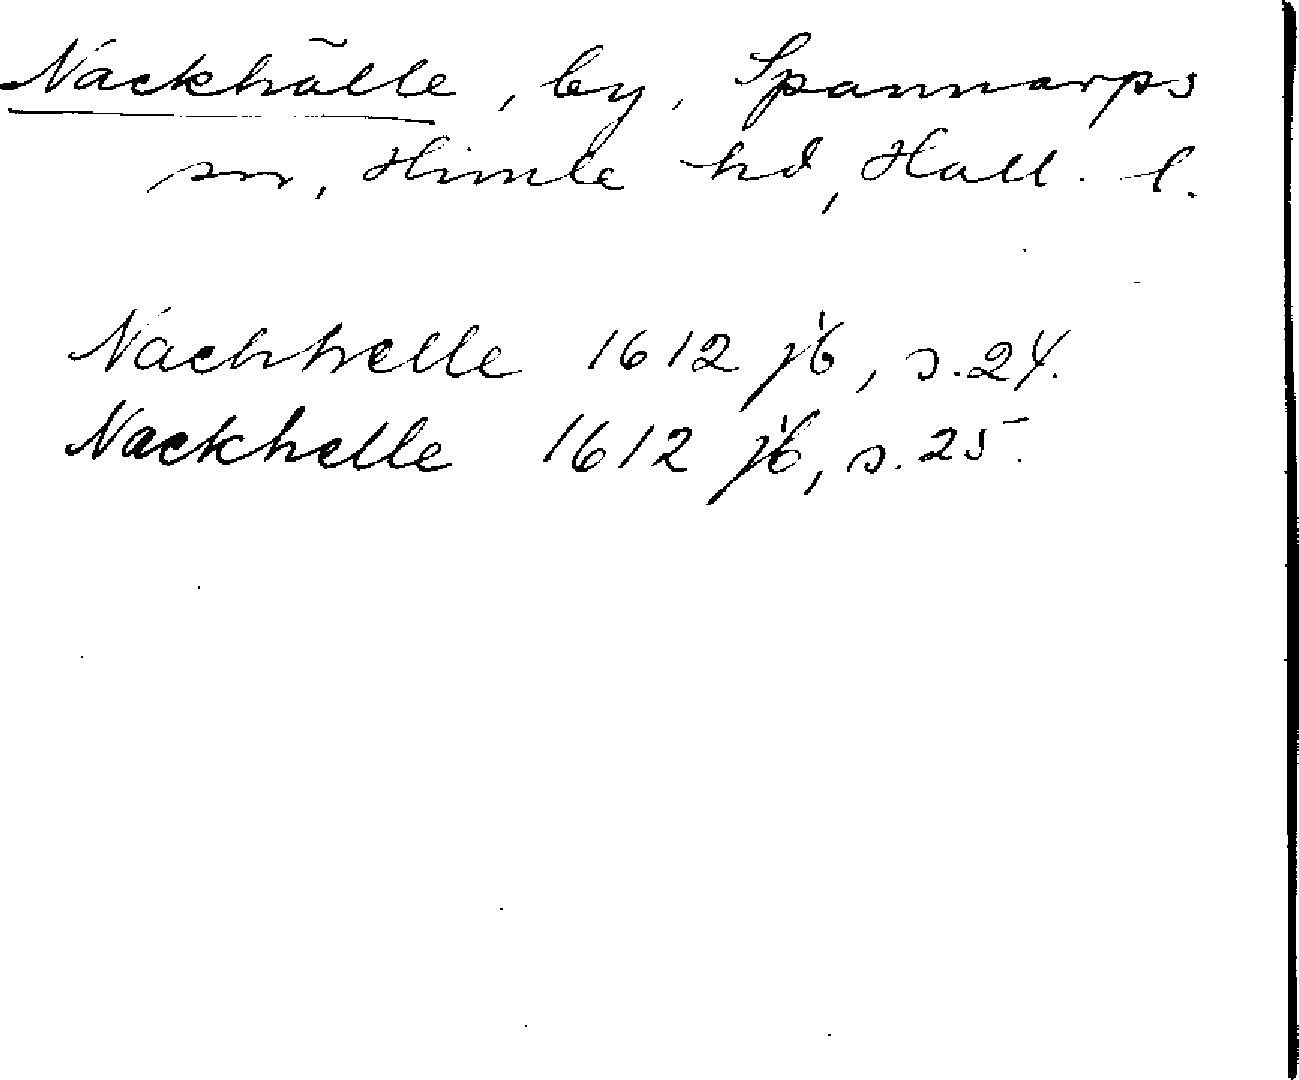 Nackhälle, by, Spannarps
sn, Himle hd, Hall. l.
Nachhelle 1612 jb, s. 24.
Nackhelle 1612 jb, s. 25.